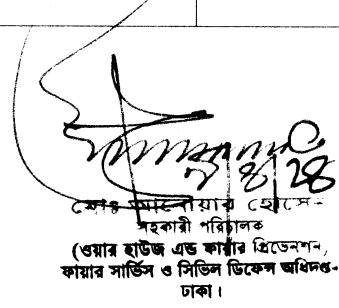 মোঃ আনোয়ার হোসেন
সহকারী পরিচালক
(ওয়ার হাউজ এন্ড ফায়ার প্রিভেনশন,
ফায়ার সার্ভিস ও সিভিল ডিফেন্স অধিদপ্ত-
ঢাকা।